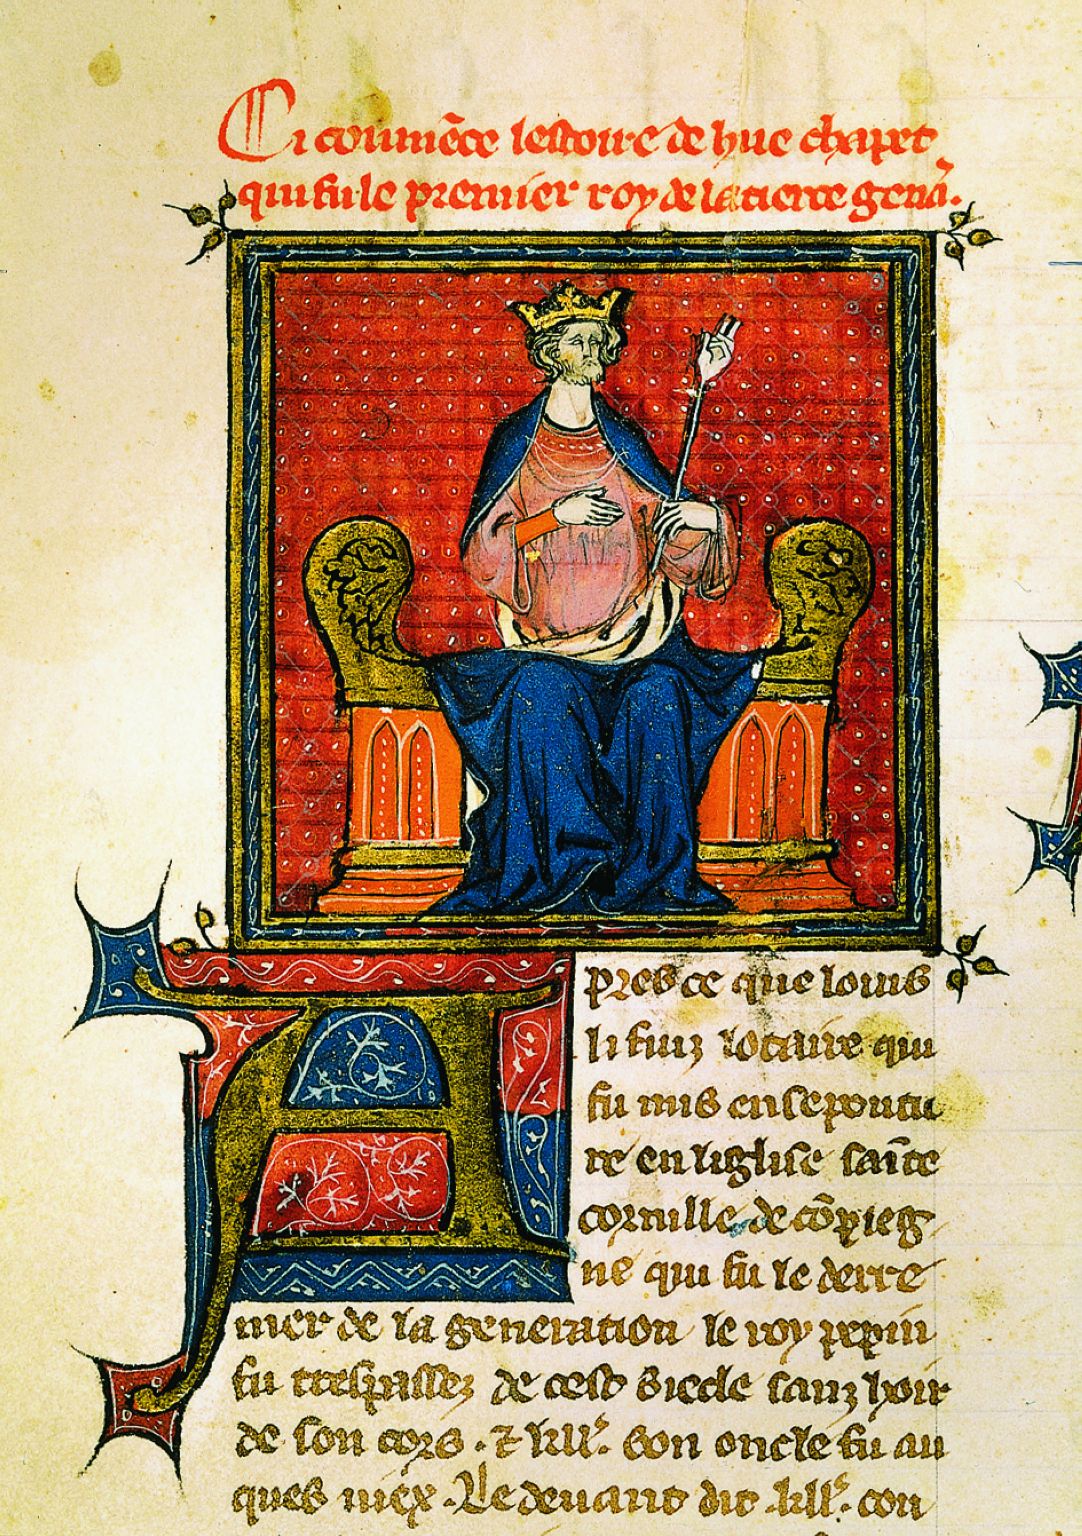 Ci coumẽce lestoire de hue chapet
qui fu le premier roy de la tierce genã.
Apres ce que louis
li fiuz lotaire qui
fu mis en sepoutu
re en liglise saĩte
cornille de cõpieg
ne qui fu le derre
nier de la generation le roy pepin
fu trespassez de cest siecle sanz hoir
de son cors. ⁊ kll'. son oncle fu au
ques niex. Le devant dit .kll'. con